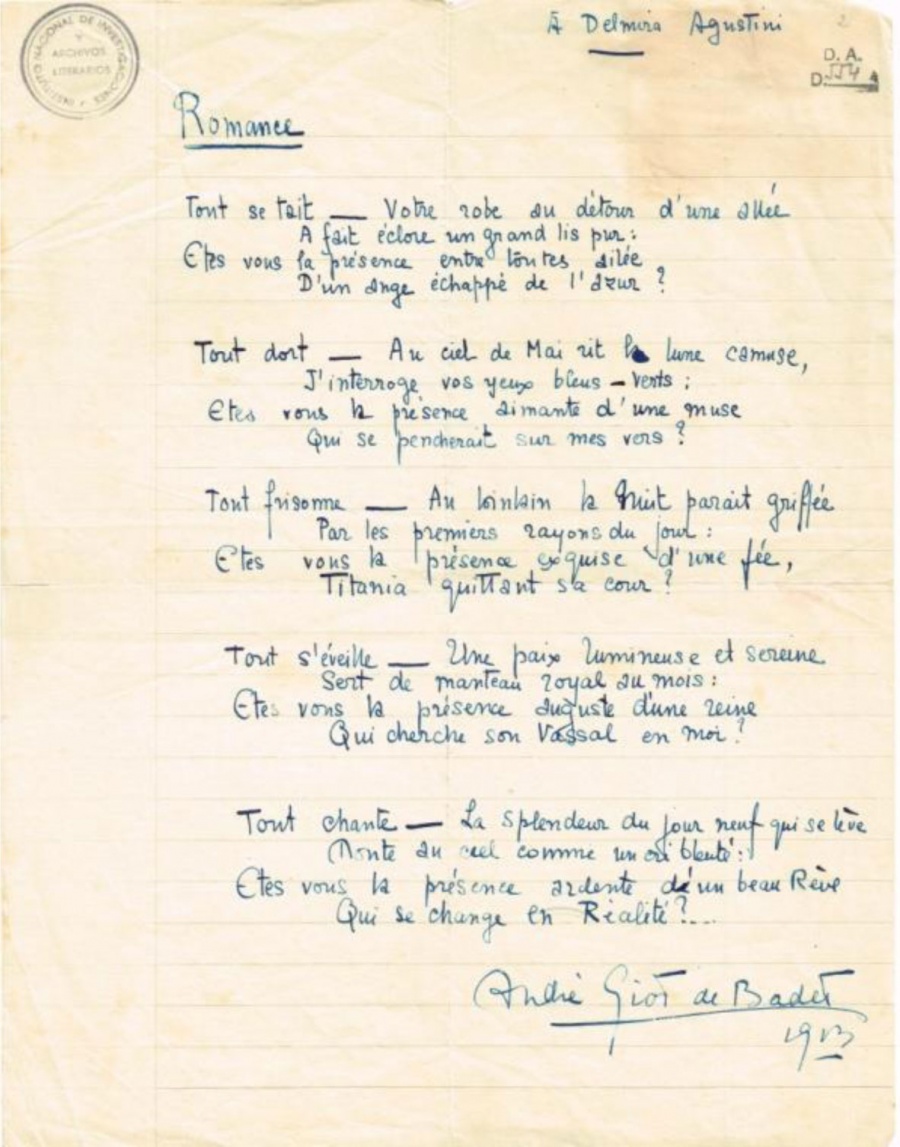 INSTITUTO NACIONAL DE INVESTIGACIONES
Y
ARCHIVOS
LITERARIOS
À Delmira Agustini
2
D. A.
D.
Romance
Tout se tait — Votre robe au détour d'une allée
A fait éclore un grand lis pur :
Etes vous la présence entre toutes ailée
D'un ange échappé de l'azur ?
Tout dort — Au ciel de Mai rit la lune camuse,
J'interroge vos yeux bleus-verts ;
Etes vous la présence aimante d'une muse
Qui se pencherait sur mes vers ?
Tout frisonne — Au lointain la Nuit parait griffée
Par les premiers rayons du jour :
Etes vous la présence exquise d'une fée,
Titania quittant sa cour ?
Tout s'éveille — Une paix lumineuse et sereine
Sert de manteau royal au mois :
Etes vous la présence auguste d'une reine
Qui cherche son Vassal en moi ?
Tout chante — La splendeur du jour neuf qui se lève
Monte au ciel comme un cri bleuté :
Etes vous la présence ardente d'un beau Rêve
Qui se change en Réalité ?...
André Giot de Badet
1913